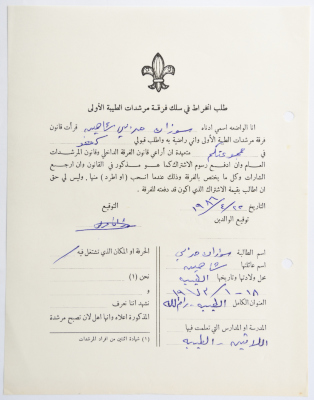 طلب انخراط في سلك فرقة مرشدات الطيبة الأولى
انا الواضعه اسمي ادناه سوزان حربي شاهين قرأت قانون
فرقة مرشدات الطيبة الاولى واني راضية به واطلب قبولي كعضو
في مجموعتكم متعهدة ان أراعي قانون الفرقة الداخلي وقانون المرشدات
العام وان ادفع رسوم الاشتراك كما هو مذكور في القانون وان ارجع
الشارات وكل ما يختص بالفرقة وذلك عندما انسحب (او اطرد) منها. وليس لي حق
ان اطالب بقيمة الاشتراك الذي اكون قد دفعته للفرقة.
التاريخ ٢٣/٤/١٩٨٦
التوقيع
توقيع الوالدين
اسم الطالبة سوزان حربي
اسم عائلتها شاهين
محل ولادتها وتاريخها الطيبه
العنوان الكامل الطيبه - رام الله
المدرسة او المدارس التي تعلمت فيها
اللاتين - الطيبه
الحرفة او المكان الذي تشتغل فيه
نحن (١)
و
نشهد اننا نعرف
المذكورة اعلاه وانها اهل لان تصبح مرشدة
(١) شهادة اثنين من افراد المرشدات